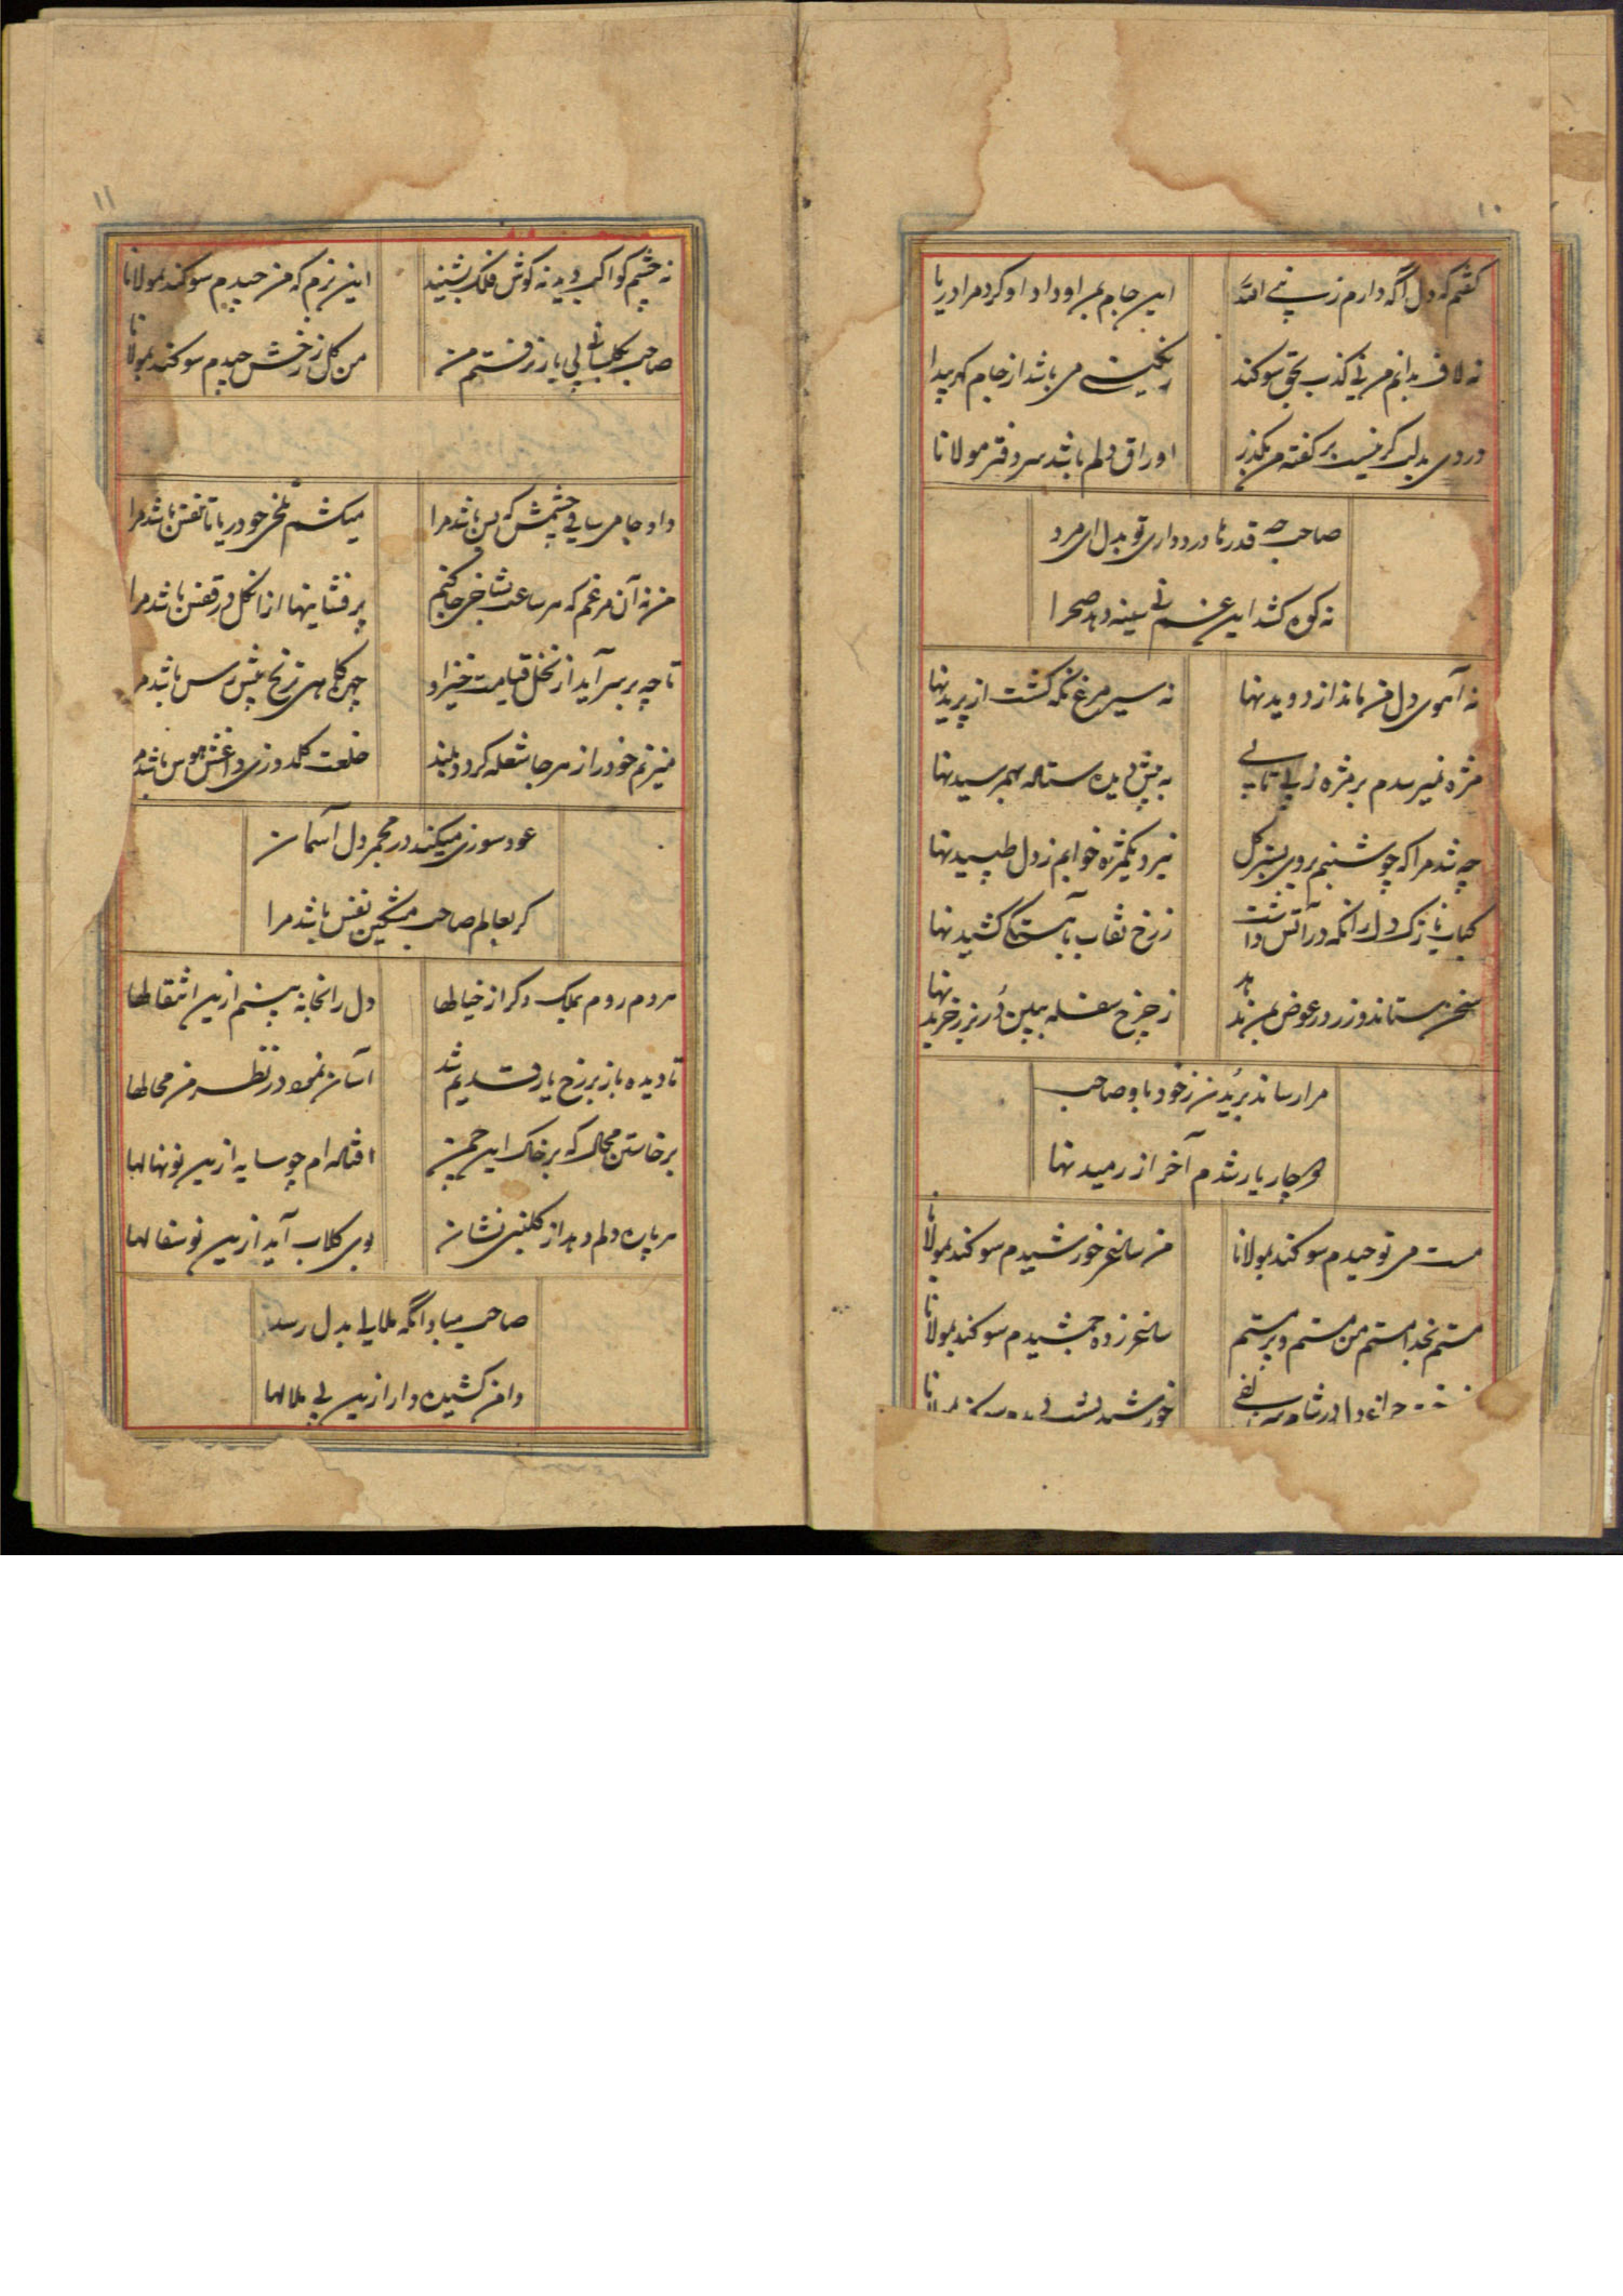 ۱۰
گفتم که دل اگه دارم زر
این جام بمن او داد او کرد مرا دریا
نه لاف بدانم من نی کذب بحق سوکند
رنگینی می باشد از جام گهر پیدا
دردی بدلت گر نیست بر گفته من مگذر
اوراق دلم باشد سر دفتر مولانا
صاحب چه قدرها درد داری تو بدل ای مرد
نه کوه کشد این غم نی سینه دهد صحرا
نه آهوی دل من ماند از دویدنها
نه سیر مرغ نگه گشت از پریدنها
مژه نمیرسدم بر مژه ز بی تابی
به پیش دیده ستاده بهم رسیدنها
چه شد مرا که چو شبنم بروی بستر گل
نبرد یکمژه خوابم ز دل طپیدنها
کباب نازک دل را نگه در آتش داشت
ز رخ نقاب بآهستگی کشیدنها
سخن ستاند و زر در عوض بمن ندهد
ز چرخ سفله ببین در بزر خریدنها
مرا رساند بریدن ز خود باو صاحب
دچار یار شدم آخر از رمیدنها
مست می توحیدم سوکند بمولانا
من ساغر خورشیدم سوکند بمولانا
مستم بخدا مستم من مستم و بر مستم
ساغر زده جمشیدم سوکند بمولانا
۱۱
نه چشم کواکب دید نه گوش فلک بشنید
این بزم که من چیدم سوکند بمولانا
صاحب بگلستانی بی یار نرفتم من
من گل ز رخش چیدم سوکند بمولانا
داد جا می ساقی چشمش که بس باشد مرا
میکشم تلخی چو دریا تا نفس باشد مرا
من نه آن مرغم که هر ساعت بشاخی جا کنم
پر فشانیها از آن گل در قفس باشد مرا
تا چه بر سر آید از نخل قیامت خیز او
چهره کاهی ترنج پیش رس باشد مرا
میزنم خود را ز هر جا شعله گردد بلند
خلعت گلدوزی داغش هوس باشد مرا
عود سوزی میکند در مجمر دل آسمان
گر بعالم صاحب مشکین نفس باشد مرا
هر دم روم بملک دگر از خیالها
دل را بخانه بینم ازین انتقالها
تا دیده باز بر رخ یار قدیم شد
آسان نمود در نظر من محالها
برخاستن محال که بر خاک این چمن
افتاده ام چو سایه ازین نونهالها
هر پاره دلم دهد از گلبنی نشان
بوی گلاب آید ازین نو سفالها
صاحب مبادا نگه ملالی بدل رسد
دامن کشیده دار ازین بی ملالها